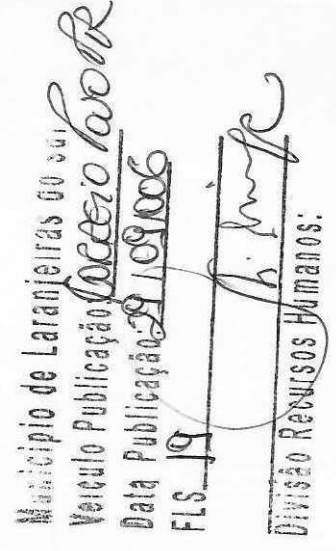 Município de Laranjeiras do Sul
Veículo Publicação: Correio Povo PR
Data Publicação: 29/09/006
FLS 19
Divisão Recursos Humanos: